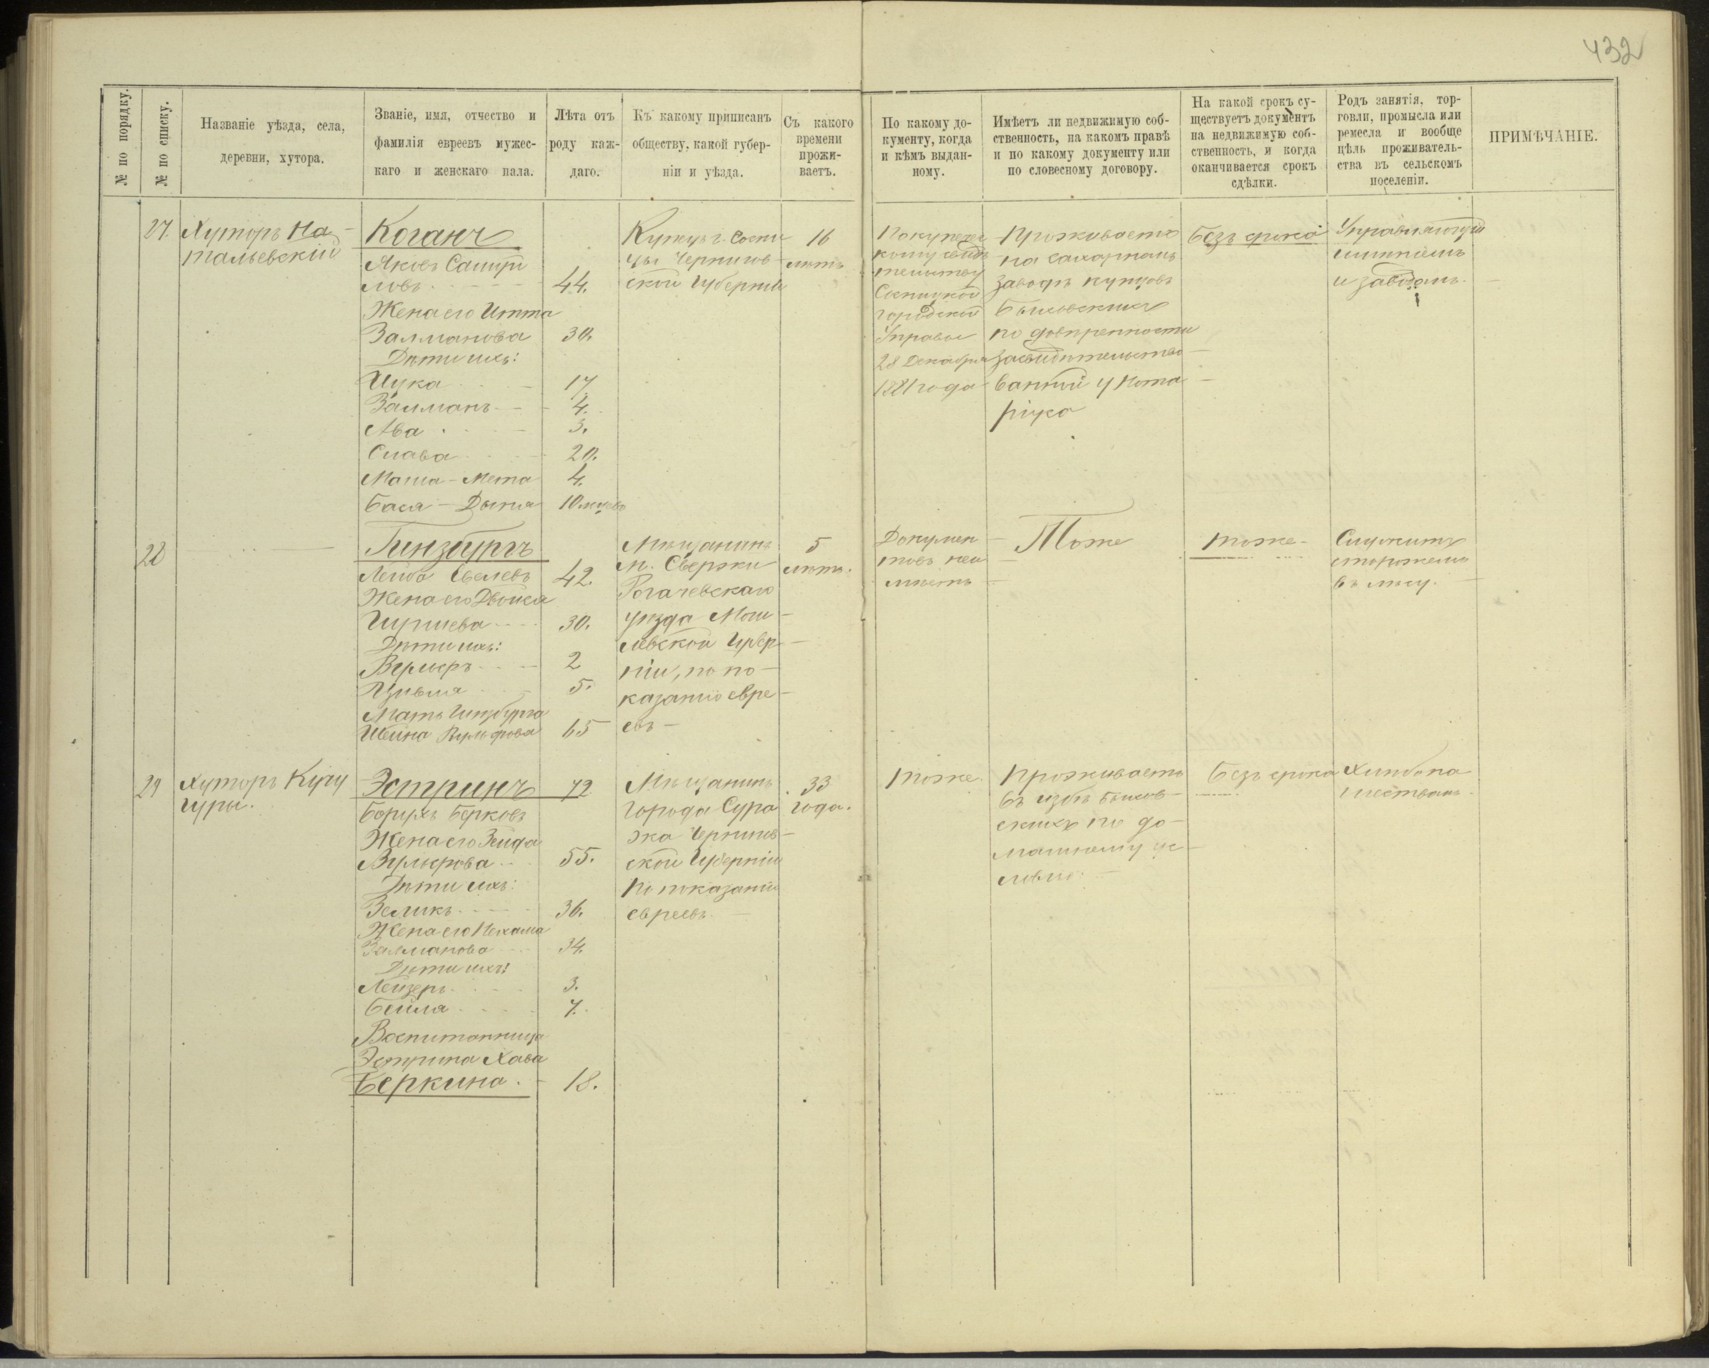 432
№ по порядку.
№ по списку.
Названіе уѣзда, села,
деревни, хутора.
Званіе, имя, отчество и
фамилія евреевъ мужес-
каго и женскаго пала.
Лѣта отъ
роду каж-
даго.
Къ какому приписанъ
обществу, какой губер-
ніи и уѣзда.
Съ какого
времени
прожи-
ваетъ.
По какому до-
кументу, когда
и кѣмъ выдан-
ному.
Имѣетъ ли недвижимую соб-
ственность, на какомъ правѣ
и по какому документу или
по словесному договору.
На какой срокъ су-
ществуетъ документъ
на недвижимую соб-
ственность, и когда
оканчивается срокъ
сдѣлки.
Родъ занятія, тор-
говли, промысла или
ремесла и вообще
цѣль проживатель-
ства въ сельскомъ
поселеніи.
ПРИМѢЧАНІЕ.
27.
Хуторъ На-
тальевскій
Коганъ
Яковъ Самуи
ловъ 44.
Жена его Итта
Залманова 30.
Дѣти ихъ:
17
Залманъ 4.
3.
Слава 20.
Маша-Мета 4.
Бася - 10 мѣсяц
Купецъ г. Сосни
цы Чернигов-
ской Губерніи
16
лѣтъ
По купече
скому свидѣ
тельству
Сосницкой
Городской
Управы
28 Декабря
1881 года
Проживаетъ
на сахарномъ
заводѣ купцовъ
по довѣренности
засвидѣтельство-
ванной у Нота-
ріуса
Безъ срока
Управляющій
имѣніемъ
и заводомъ.
28
Гинзбургъ
Лейба 42.
Жена его Двойся
30.
Дѣти ихъ:
2
Цивья 5.
Мать Гинзбурга
Вульфова 65
Мѣщанинъ
м. Свержи
Рогачевскаго
уѣзда Моги-
левской Губер-
ніи, по по-
казанію евре-
евъ
5
лѣтъ.
Докумен-
товъ неи
мѣетъ
Тоже
тоже
Служитъ
сторожемъ
въ лѣсу.
29
Хуторъ Кучу
гуры.
Эстринъ 72
Борухъ Берковъ
Жена его
Вульфова 55.
Дѣти ихъ:
Зеликъ 36.
Жена его Нехама
Залманова 34.
Дѣти ихъ:
Лейзеръ 3.
Бейля 7.
Воспитанница
Эстрина Хава
Беркина. 18.
Мѣщанинъ
города Сура
жа Чернигов-
ской Губерніи
по показанію
евреевъ
33
года.
тоже
Проживаетъ
въ избѣ
по до-
машнему ус-
ловію.
Безъ срока